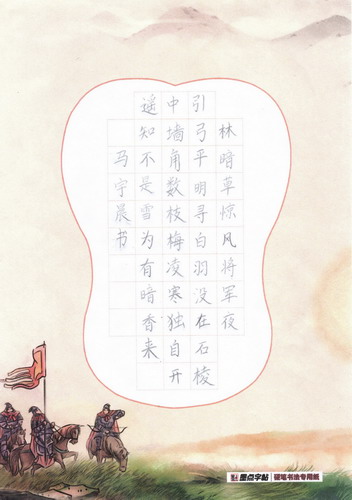 林暗草惊风将军夜
引弓平明寻白羽没在石棱
中墙角数枝梅凌寒独自开
遥知不是雪为有暗香来
马宇晨书
墨点字帖 硬笔书法专用纸